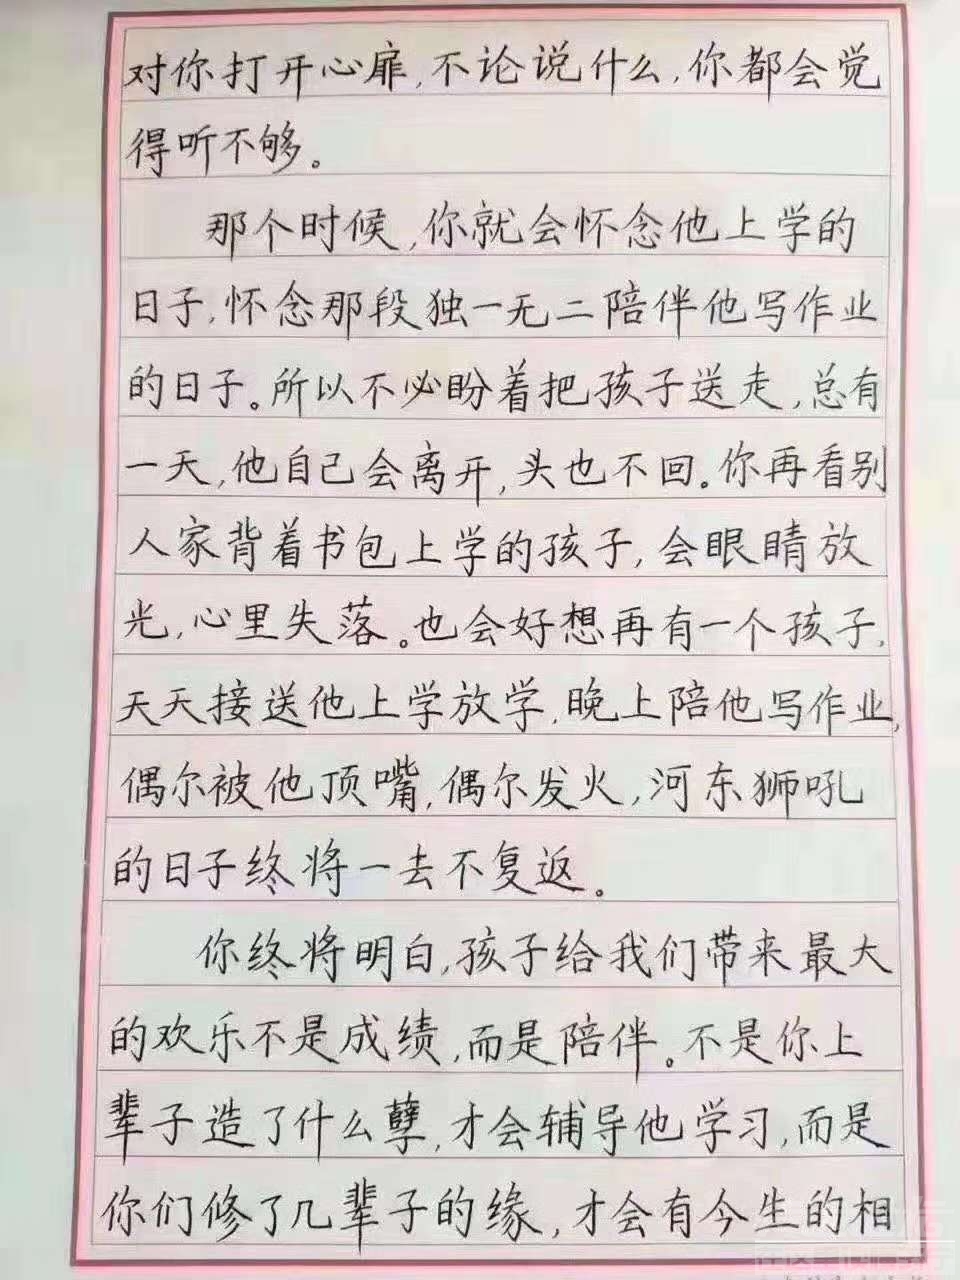 对你打开心扉,不论说什么,你都会觉
得听不够。
那个时候,你就会怀念他上学的
日子,怀念那段独一无二陪伴他写作业
的日子。所以不必盼着把孩子送走,总有
一天,他自己会离开,头也不回。你再看别
人家背着书包上学的孩子,会眼睛放
光,心里失落。也会好想再有一个孩子,
天天接送他上学放学,晚上陪他写作业,
偶尔被他顶嘴,偶尔发火,河东狮吼
的日子终将一去不复返。
你终将明白,孩子给我们带来最大
的欢乐不是成绩,而是陪伴。不是你上
辈子造了什么孽,才会辅导他学习,而是
你们修了几辈子的缘,才会有今生的相